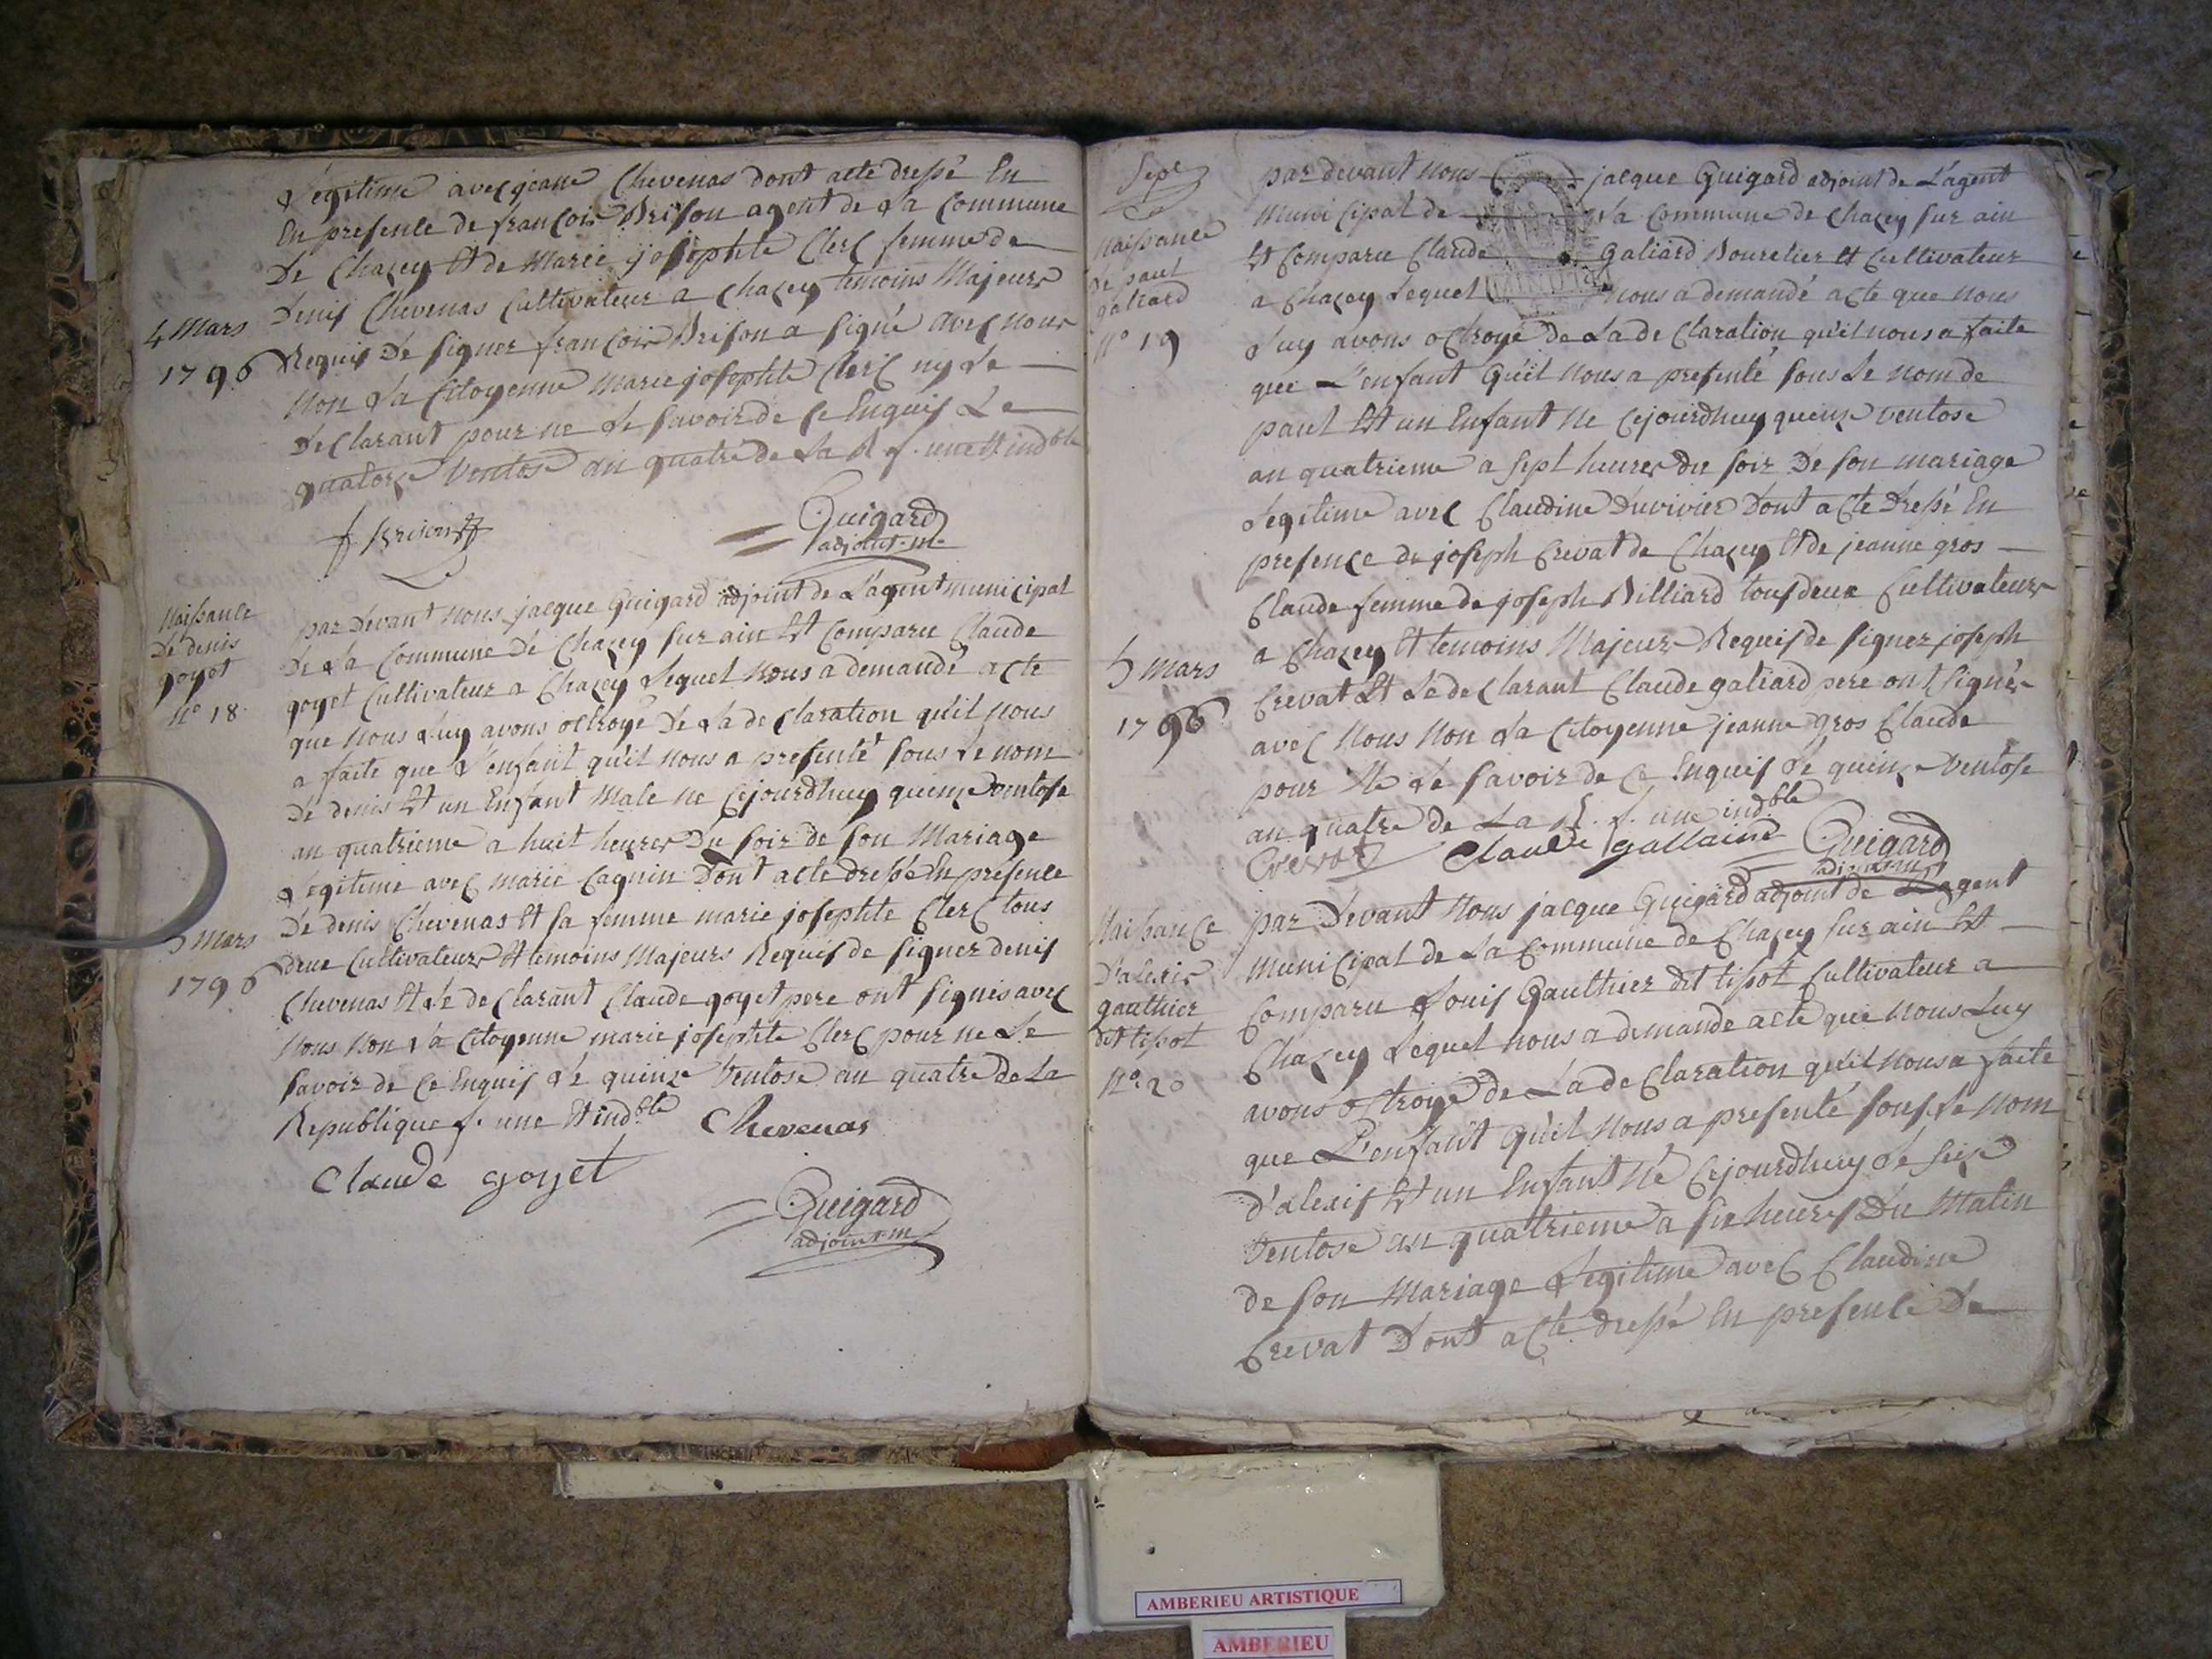 Légitime avec jeane Chevenas dont acte dressé En
En presence de francois Brison agent de La Commune
De Chazey Et de Marie josephte Clerc femme de
Denis Chevenas Cultivateur a Chazey temoins Majeurs
4 Mars
1796
Requis De signer francois Brison a signé avec nous
Non La Citoyenne marie josephte Clerc ny Le
Declarant pour ne Le savoir de ce Enquis Le
quatorze Ventose an quatre de La R f. une Et indble
f Brison
Guigard
adjoint. m.
Naissance
De denis
goyet
n° 18.
par Devant nous jacque Guigard adjoint de L'agent municipal
De La Commune De Chazey sur ain Et Comparu Claude
goyet Cultivateur a Chazey Lequel Nous a demandé acte
que nous Luy avons octroyé De La de Claration qu'il nous
a faite que L'enfant qu'il nous a presenté sous Le nom
De denis Et un Enfant Male ne Cejourdhuy quinze ventose
an quatrieme a huit heures Du soir de son Mariage
Legitime avec marie Cagnin Dont acte dressé En presence
De denis Chevenas Et sa femme marie josephte Clerc tous
5 Mars
1796
deux Cultivateurs Et temoins Majeurs Requis de signer denis
Chevenas Et Le de Clarant Claude goyet pere ont signés avec
Nous Non La Citoyenne marie josephte Clerc pour ne Le
savoir de ce Enquis Le quinze Ventose an quatre de La
Republique f. une Et indble
Chevenas
Claude goyet
Guigard
adjoint m
Sept
Naissance
De paul
galiard
n° 19
par devant nous jacque Guigard adjoint de L'agent
Municipal de La Commune de Chazey sur ain
Et Comparu Claude Galiard Bourelier Et Cultivateur
a Chazey Lequel nous a demandé acte que nous
Luy avons octroyé de La de Claration qu'il nous a faite
que L'enfant Qu'il nous a presenté sous Le nom de
paul Et un Enfant Ne Cejourdhuy quinze ventose
an quatrieme a sept heures du soir De son mariage
Legitime avec Claudine Duvivier Dont acte Dressé En
presence de joseph Crevat de Chazey Et de jeanne gros
Claude femme de joseph Billiard tous deux Cultivateurs
5 Mars
1796
a Chazey Et temoins Majeurs Requis de signer joseph
Crevat Et Le de Clarant Claude galiard pere ont signés
avec Nous Non La Citoyenne jeanne gros Claude
pour Ne Le savoir de Ce Enquis Le quinze Ventose
an quatre de La R. f. une indble
Crevat
Claude gallaird
Guigard
adjoint m
Naissance
D'alexis
gauthier
dit tissot
N° 20
par Devant Nous jacque Guigard adjoint de L'agent
Municipal de La Commune de Chazey sur ain Et
Comparu Louis Gauthier dit tissot Cultivateur a
Chazey Lequel nous a demande acte que nous Luy
avons octroye de La de Claration qu'il nous a faite
que L'enfant Qu'il nous a presenté sous Le nom
d'alexis Et un Enfant Né Cejourdhuy Le seize
Ventose an quatrieme a six heures Du Matin
de son Mariage Legitime avec Claudine
Crevat Dont acte dressé En presence De
AMBERIEU ARTISTIQUE
AMBERIEU